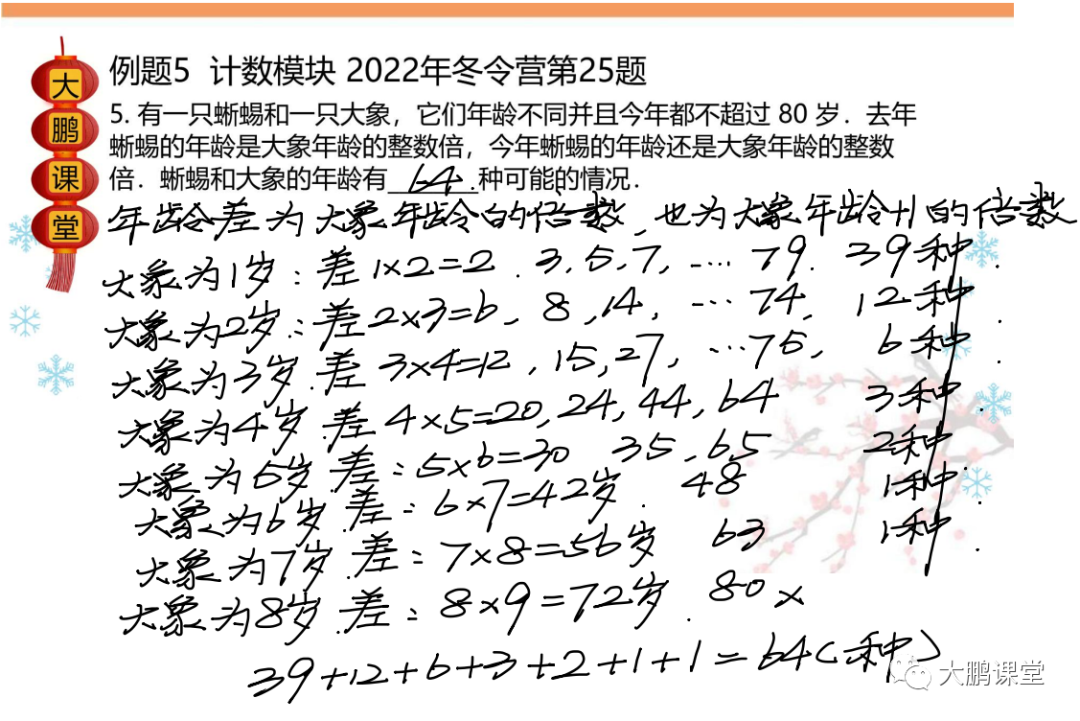 大鹏课堂
例题5 计数模块 2022年冬令营第25题
5. 有一只蜥蜴和一只大象，它们年龄不同并且今年都不超过 80 岁．去年
蜥蜴的年龄是大象年龄的整数倍，今年蜥蜴的年龄还是大象年龄的整数
倍．蜥蜴和大象的年龄有 64 种可能的情况．
年龄差为大象年龄的倍数，也为大象年龄+1的倍数
大象为1岁：差1×2=2．3，5，7，…79．39种．
大象为2岁：差2×3=6，8，14，…74，12种．
大象为3岁．差3×4=12，15，27，…75，6种．
大象为4岁．差4×5=20，24，44，64 3种．
大象为5岁．差：5×6=30 35，65 2种．
大象为6岁．差：6×7=42岁．48 1种．
大象为7岁．差：7×8=56岁 63 1种．
大象为8岁．差：8×9=72岁．80 ×
39+12+6+3+2+1+1=64（种）
大鹏课堂